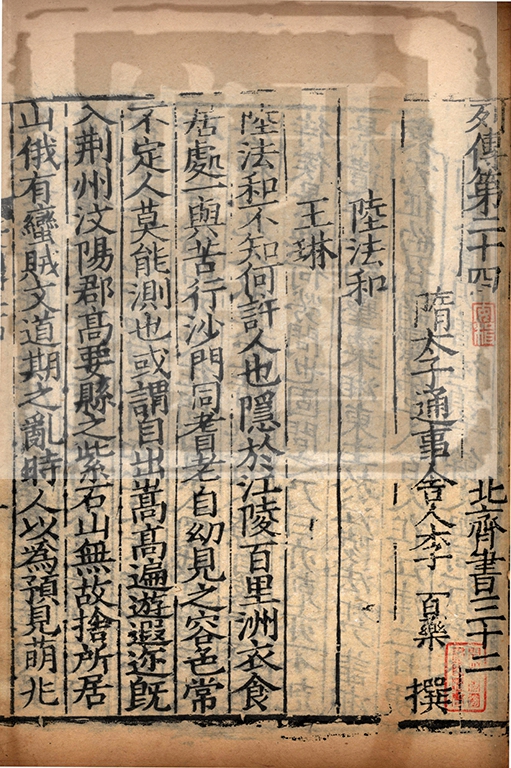 列傳第二十四 北齊書三十二
隋太子通事舍人李 百藥 撰
陸法和
王琳
陸法和不知何許人也隱於江陵百里洲衣食
居處一與苦行沙門同耆老自幼見之容色常
不定人莫能測也或謂自出嵩髙遍遊遐迩旣
入荆州汶陽郡髙要縣之紫石山無故捨所居
山俄有蠻賊文道期之亂時人以為預見萌兆